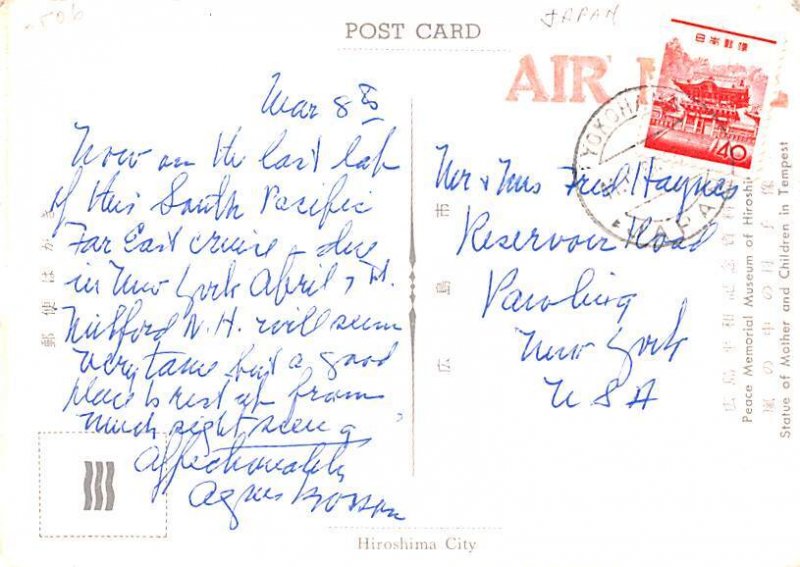 506
JAPAN
POST CARD
AIR
日本郵便
40
YOKOHAMA
JAPAN
Mar 8th
Now on the last lap
of this South Pacific
Far East cruise - due
in New York April
Milford N.H. will seem
very tame but a good
place to rest up from
much sight seeing
Affectionately
Agnes
Mr & Mrs Fred Haynes
Reservoir Road
Pawling
New York
USA
郵便はがき
広島市
広島平和記念資料
Peace Memorial Museum of Hiroshi
嵐の中の母子像
Statue of Mother and Children in Tempest
Hiroshima City